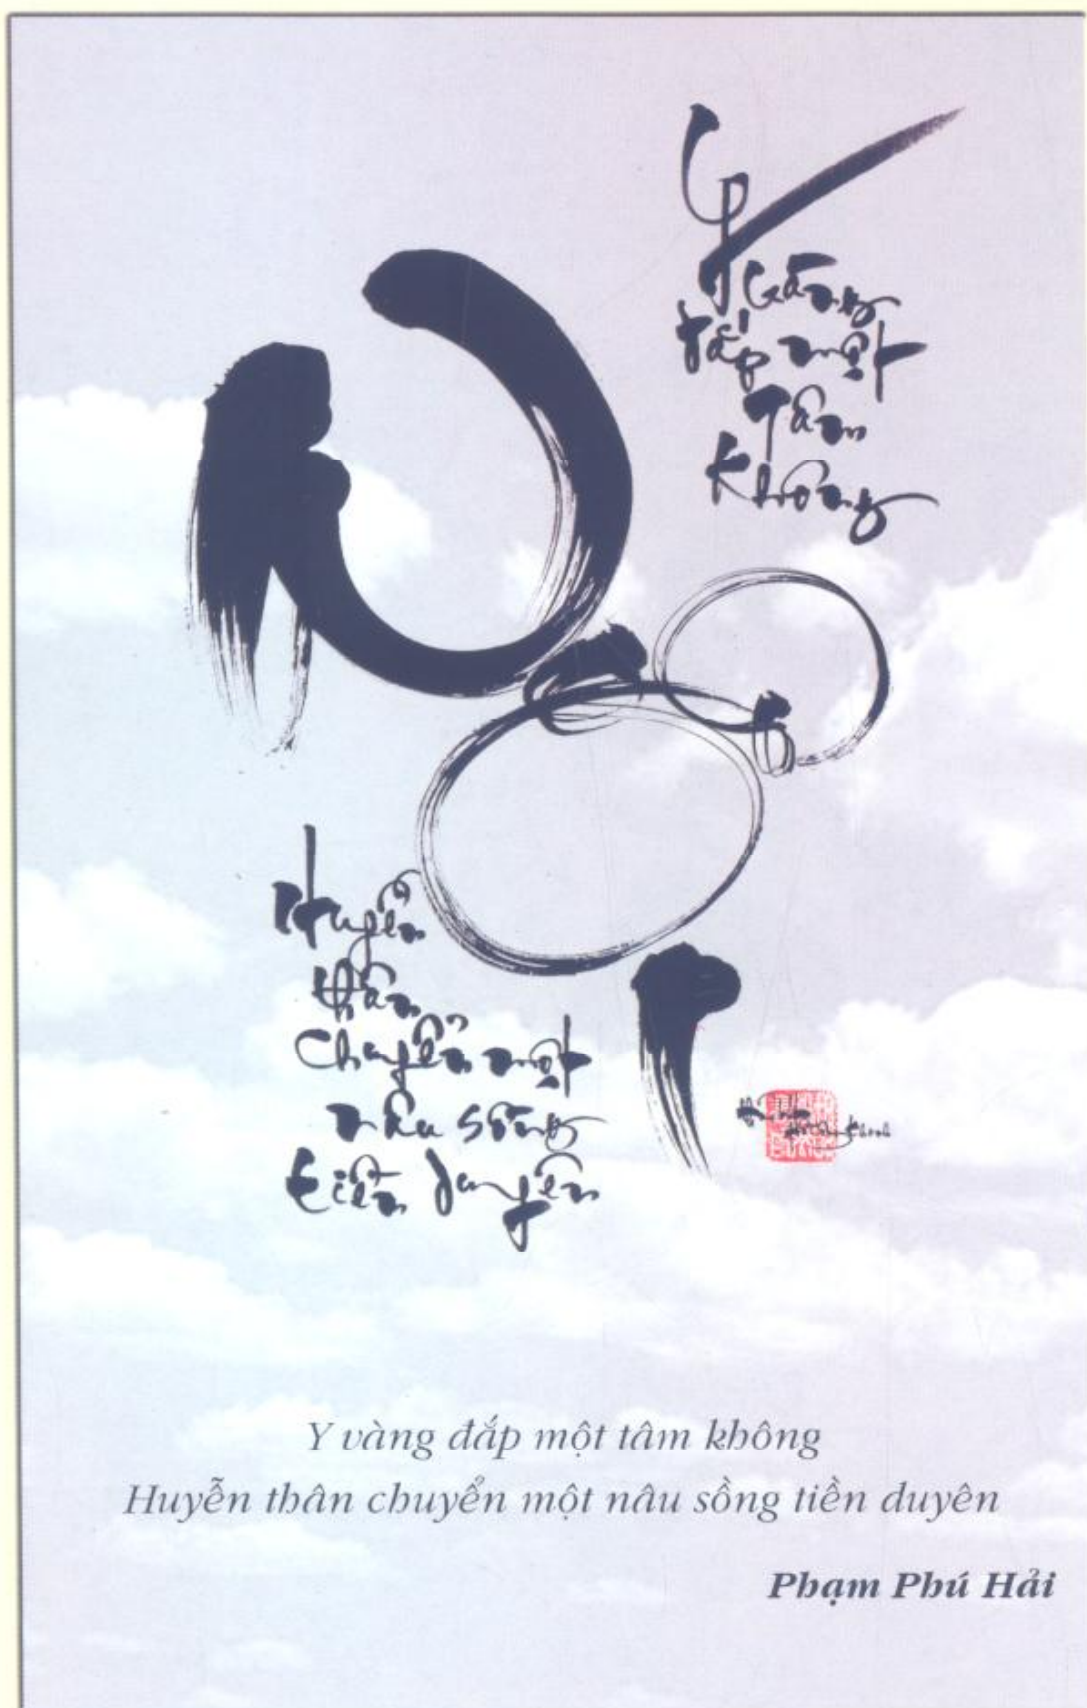 Y
vàng
đắp một
Tâm
Không
Huyễn
thân
Chuyển một
nâu sồng
tiền duyên
Y vàng đắp một tâm không
Huyễn thân chuyển một nâu sồng tiền duyên
Phạm Phú Hải